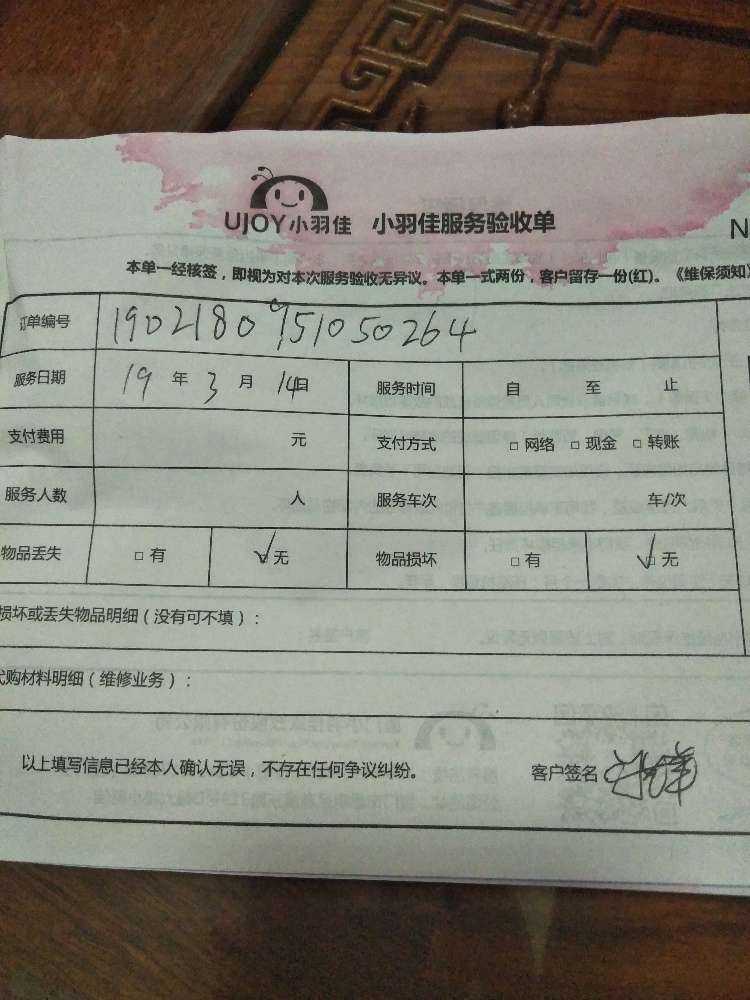 UJOY小羽佳 小羽佳服务验收单
N
本单一经核签，即视为对本次服务验收无异议。本单一式两份，客户留存一份(红)。《维保须知》
订单编号 1902180951050264
服务日期 19 年 3 月 14日 服务时间 自 至 止
支付费用 元 支付方式 □ 网络 □ 现金 □ 转账
服务人数 人 服务车次 车/次
物品丢失 □ 有 ☑ 无 物品损坏 □ 有 ☑ 无
损坏或丢失物品明细（没有可不填）：
代购材料明细（维修业务）：
以上填写信息已经本人确认无误，不存在任何争议纠纷。 客户签名